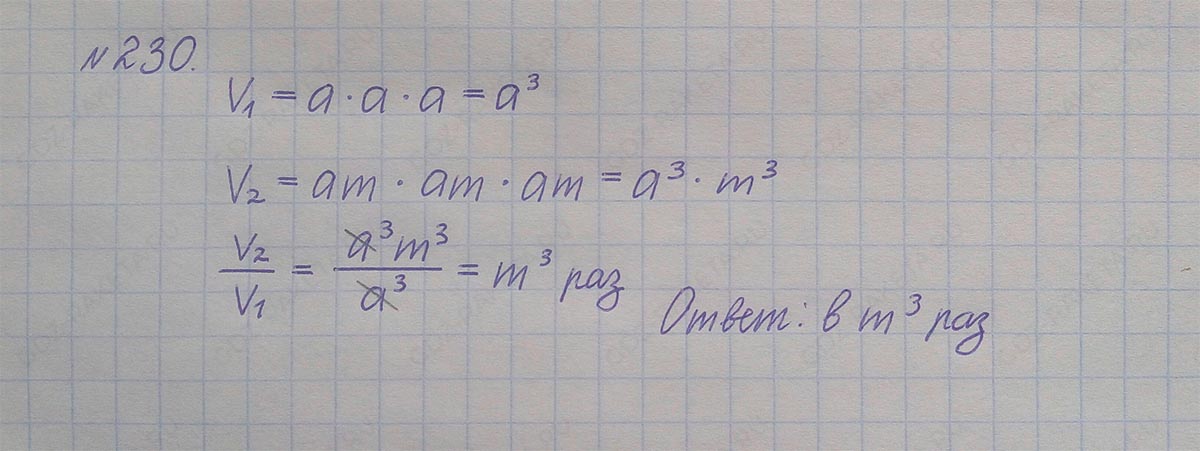 №230.
V₁ = a · a · a = a³
V₂ = am · am · am = a³ · m³
V₂/V₁ = a³m³/a³ = m³ раз
Ответ: в m³ раз